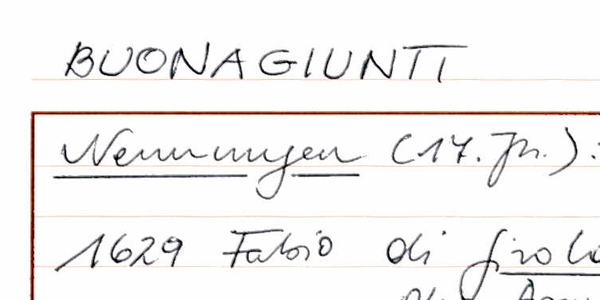 BUONAGIUNTI
Nennungen (17. Jh.):
1629 Fabio di